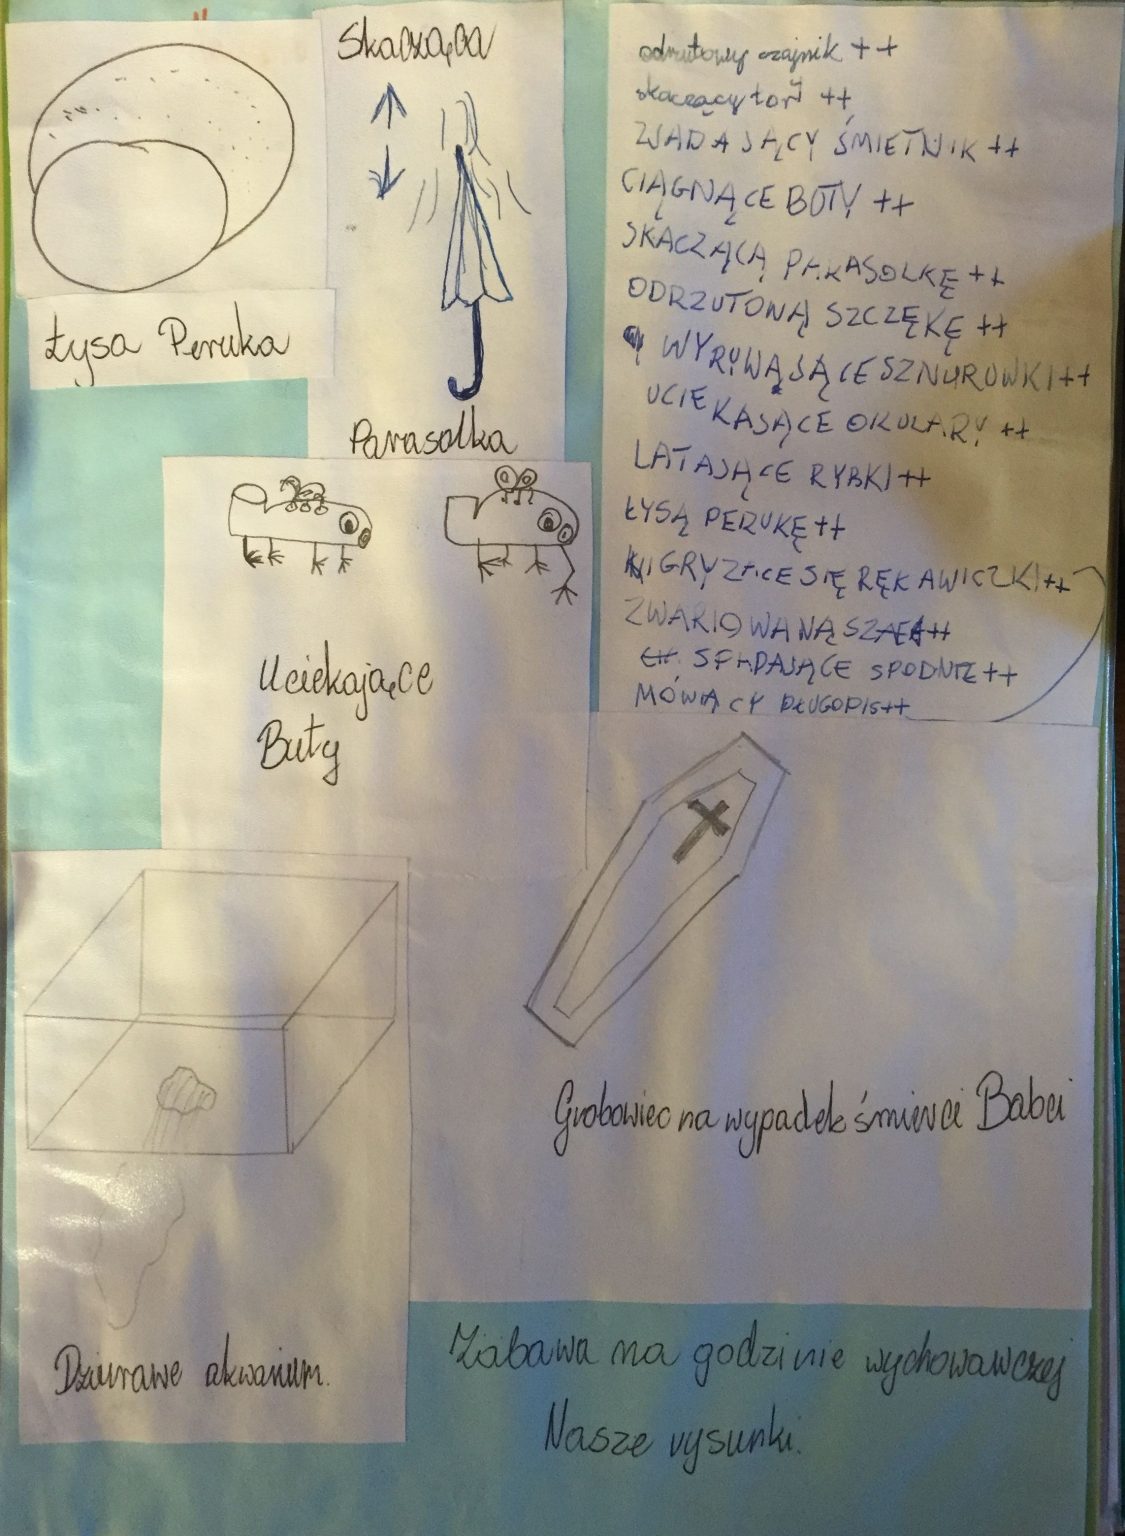 Łysa Peruka
Skacząca
Parasolka
odrzutowy czajnik ++
skaczący ++
ZJADAJĄCY ŚMIETNIK ++
CIĄGNĄCE BUTY ++
SKACZĄCĄ PARASOLKĘ ++
ODRZUTONĄ SZCZĘKĘ ++
WYRYWAJĄCE SZNURÓWKI ++
UCIEKAJĄCE OKULARY ++
LATAJĄCE RYBKI ++
ŁYSĄ PERUKĘ ++
GRYZĄCE SIĘ RĘKAWICZKI ++
ZWARIOWANĄ ++
SPADAJĄCE SPODNIE ++
MÓWIĄCY DŁUGOPIS ++
Uciekające
Buty
Grobowiec na wypadek śmierci Babci
Dziurawe akwarium.
Zabawa na godzinie wychowawczej
Nasze rysunki.